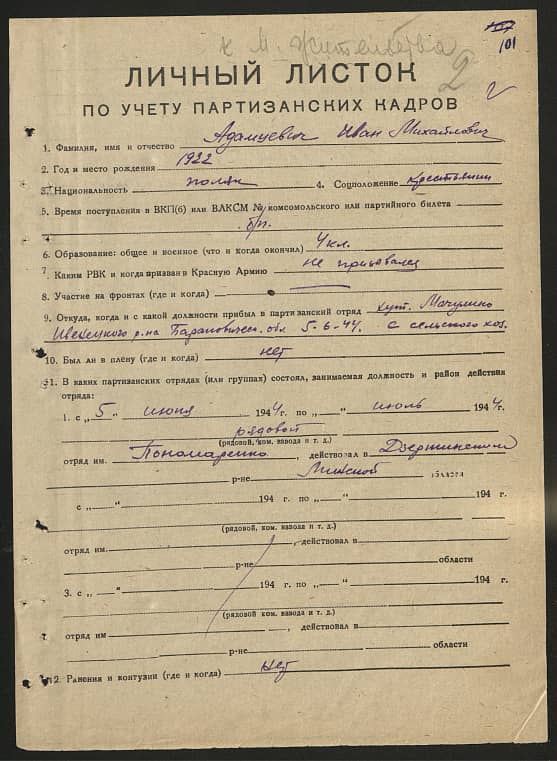 101
к м. жительства
2
ЛИЧНЫЙ ЛИСТОК
ПО УЧЕТУ ПАРТИЗАНСКИХ КАДРОВ
1. Фамилия, имя и отчество Адамцевич Иван Михайлович
2. Год и место рождения 1922
3. Национальность поляк 4. Соцположение крестьянин
5. Время поступления в ВКП(б) или ВЛКСМ № комсомольского или партийного билета
б/п.
6. Образование: общее и военное (что и когда окончил) 4 кл.
7. Каким РВК и когда призван в Красную Армию не призывался
8. Участие на фронтах (где и когда)
9. Откуда, когда и с какой должности прибыл в партизанский отряд хут. Мачулино
Ивенецкого р-на Барановичск. обл 5-6-44. с сельского хоз.
10. Был ли в плену (где и когда) нет
11. В каких партизанских отрядах (или группах) состоял, занимаемая должность и район действия
отряда:
1. с „5“ июня 1944 г. по „ “ июль 1944 г.
рядовой
(рядовой, ком. взвода и т. д.)
отряд им. Пономаренко, действовал в Дзержинском
р-не Минской области
с „ “ 194 г. по „ “ 194 г.
(рядовой, ком. взвода и т. д.)
отряд им. , действовал в
р-не области
3. с „ “ 194 г. по „ “ 194 г.
(рядовой, ком. взвода и т. д.)
отряд им , действовал в
р-не области
12. Ранения и контузии (где и когда) нет